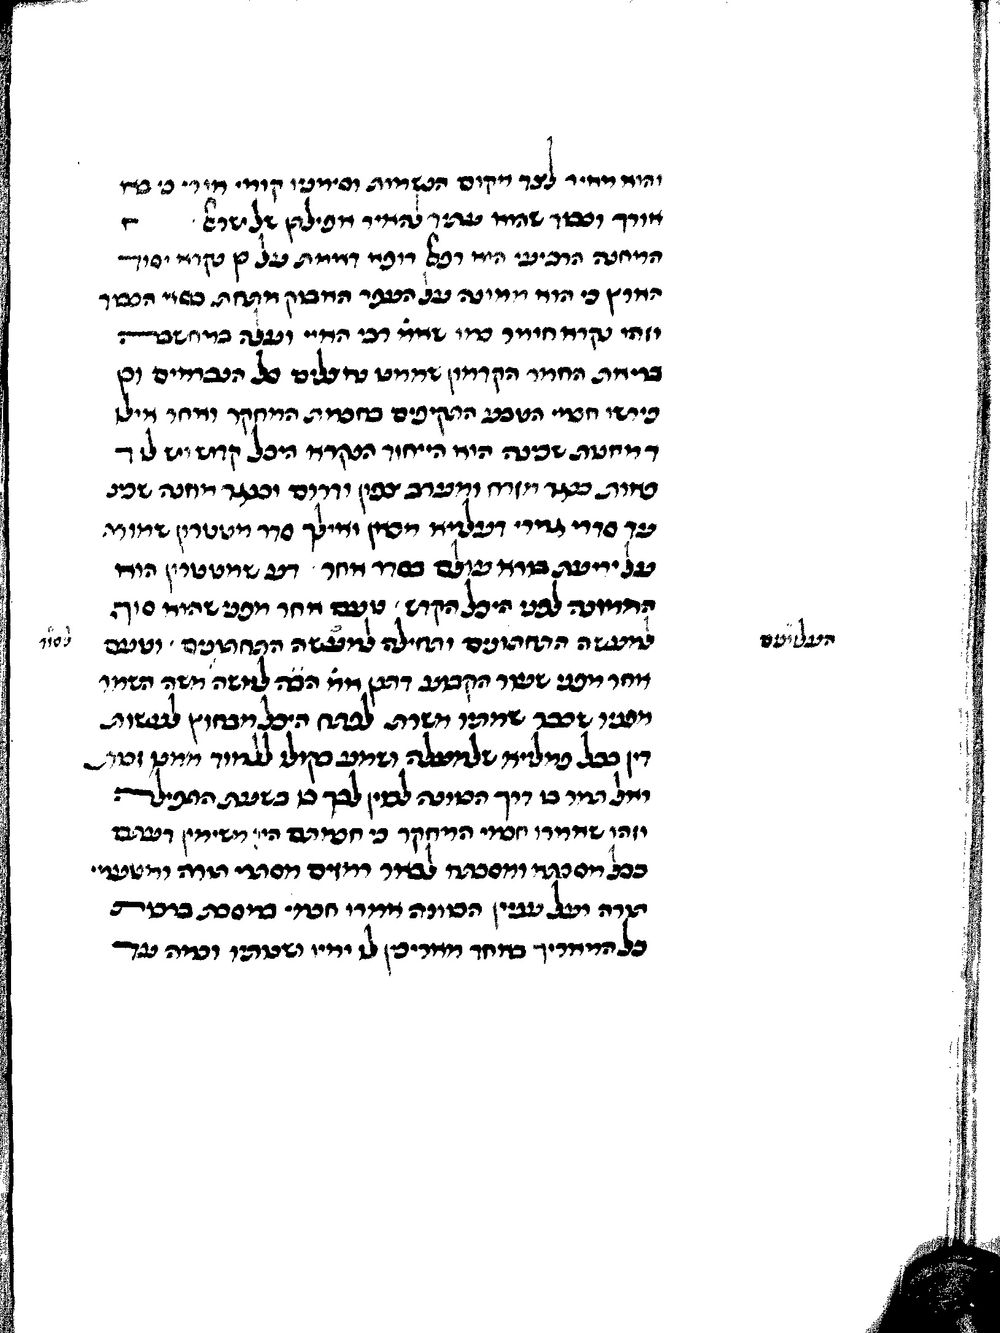 והוא מאיר לצד מקום הנשמות וסימניו קומי אורי כי בא
אורך וכבר שהוא עתיד להאיר אפילתן של ישראל
המחנה הרביעי הוא רפאל רופא דאמת על כן נקרא יסוד
הארץ כי הוא ממונה על העפר החבוק מתחת כסא הכבוד
וזהו נקרא חומר כמו שאמ׳ רבי המיי ועלה במחשבה
בריאת החמר הקדמון שממנו נחצלים כל הנבראים וכן
פירשו חכמי הטבע התקיפים בחכמת המחקר ואחר אילו
ד מחנות שכינה הוא הייחוד הנקרא היכל קדוש ויש לו ד
פאות כנגד מזרח ומערב צפון ודרום וכנגד מחנה שכינ
עד סדרי גמירי דעלמא מכאן ואילך סדר מטטרון שמורה
על ידיעת בורא עולם בסדר אחר דע שמטטרון הוא
הממונה לפני היכל הקדש טעם אחר מפני שהוא סוף
למעשה התחתונים ותחילה למעשה התחתונים וטעם
אחר מפני שעור הקבוע דהתן אמ׳ הב״ה למשה משה השמר
מפניו שכבר שמתיו משרת לפתח היכל מבחוץ לעשות
דין בכל פמליא שלמעלה ושמע בקולו ללמוד ממנו זכות
ואל תמר בו דרך הכוונה לכוין לבך בו בשעת התפילה
וזהו שאמרו חכמי המחקר כי חכמתם היו משימין דעתם
בכל מסכתא ומסכתא לבאר רמזים מסתרי תורה ומטעמי
תורה ועל ענין הכוונה אמרו חכמי במסכת ברכות
כל המאריך באחד מאריכין לו ימיו ושנותיו וכמה עד
העליונים
לסוד